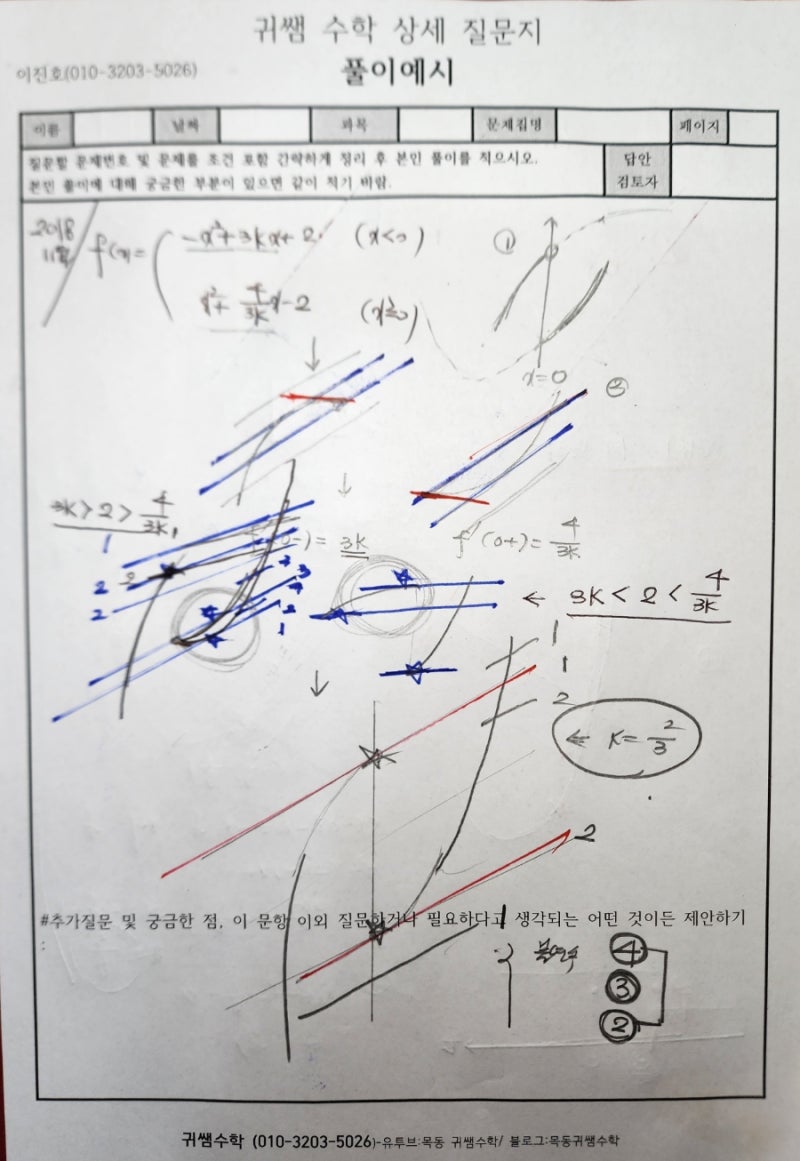 귀쌤 수학 상세 질문지
이진호(010-3203-5026)
풀이예시
이름 날짜 과목 문제집명 페이지
질문할 문제번호 및 문제를 조건 포함 간략하게 정리 후 본인 풀이를 적으시오.
본인 풀이에 대해 궁금한 부분이 있으면 같이 적기 바람.
답안
검토자
2018
f(x)=
-x²+3kx+2 (x<0)
x²+4/3k x-2 (x≥0)
①
x=0
②
3k>2>4/3k
1
2
2
2
3
4
2
1
(0-)=3k
f'(0+)=4/3k
← 3k<2<4/3k
1
1
2
← k=2/3
2
#추가질문 및 궁금한 점, 이 문항 이외 질문하거나 필요하다고 생각되는 어떤 것이든 제안하기
:
④
③
②
귀쌤수학 (010-3203-5026)-유투브:목동 귀쌤수학/ 블로그:목동귀쌤수학